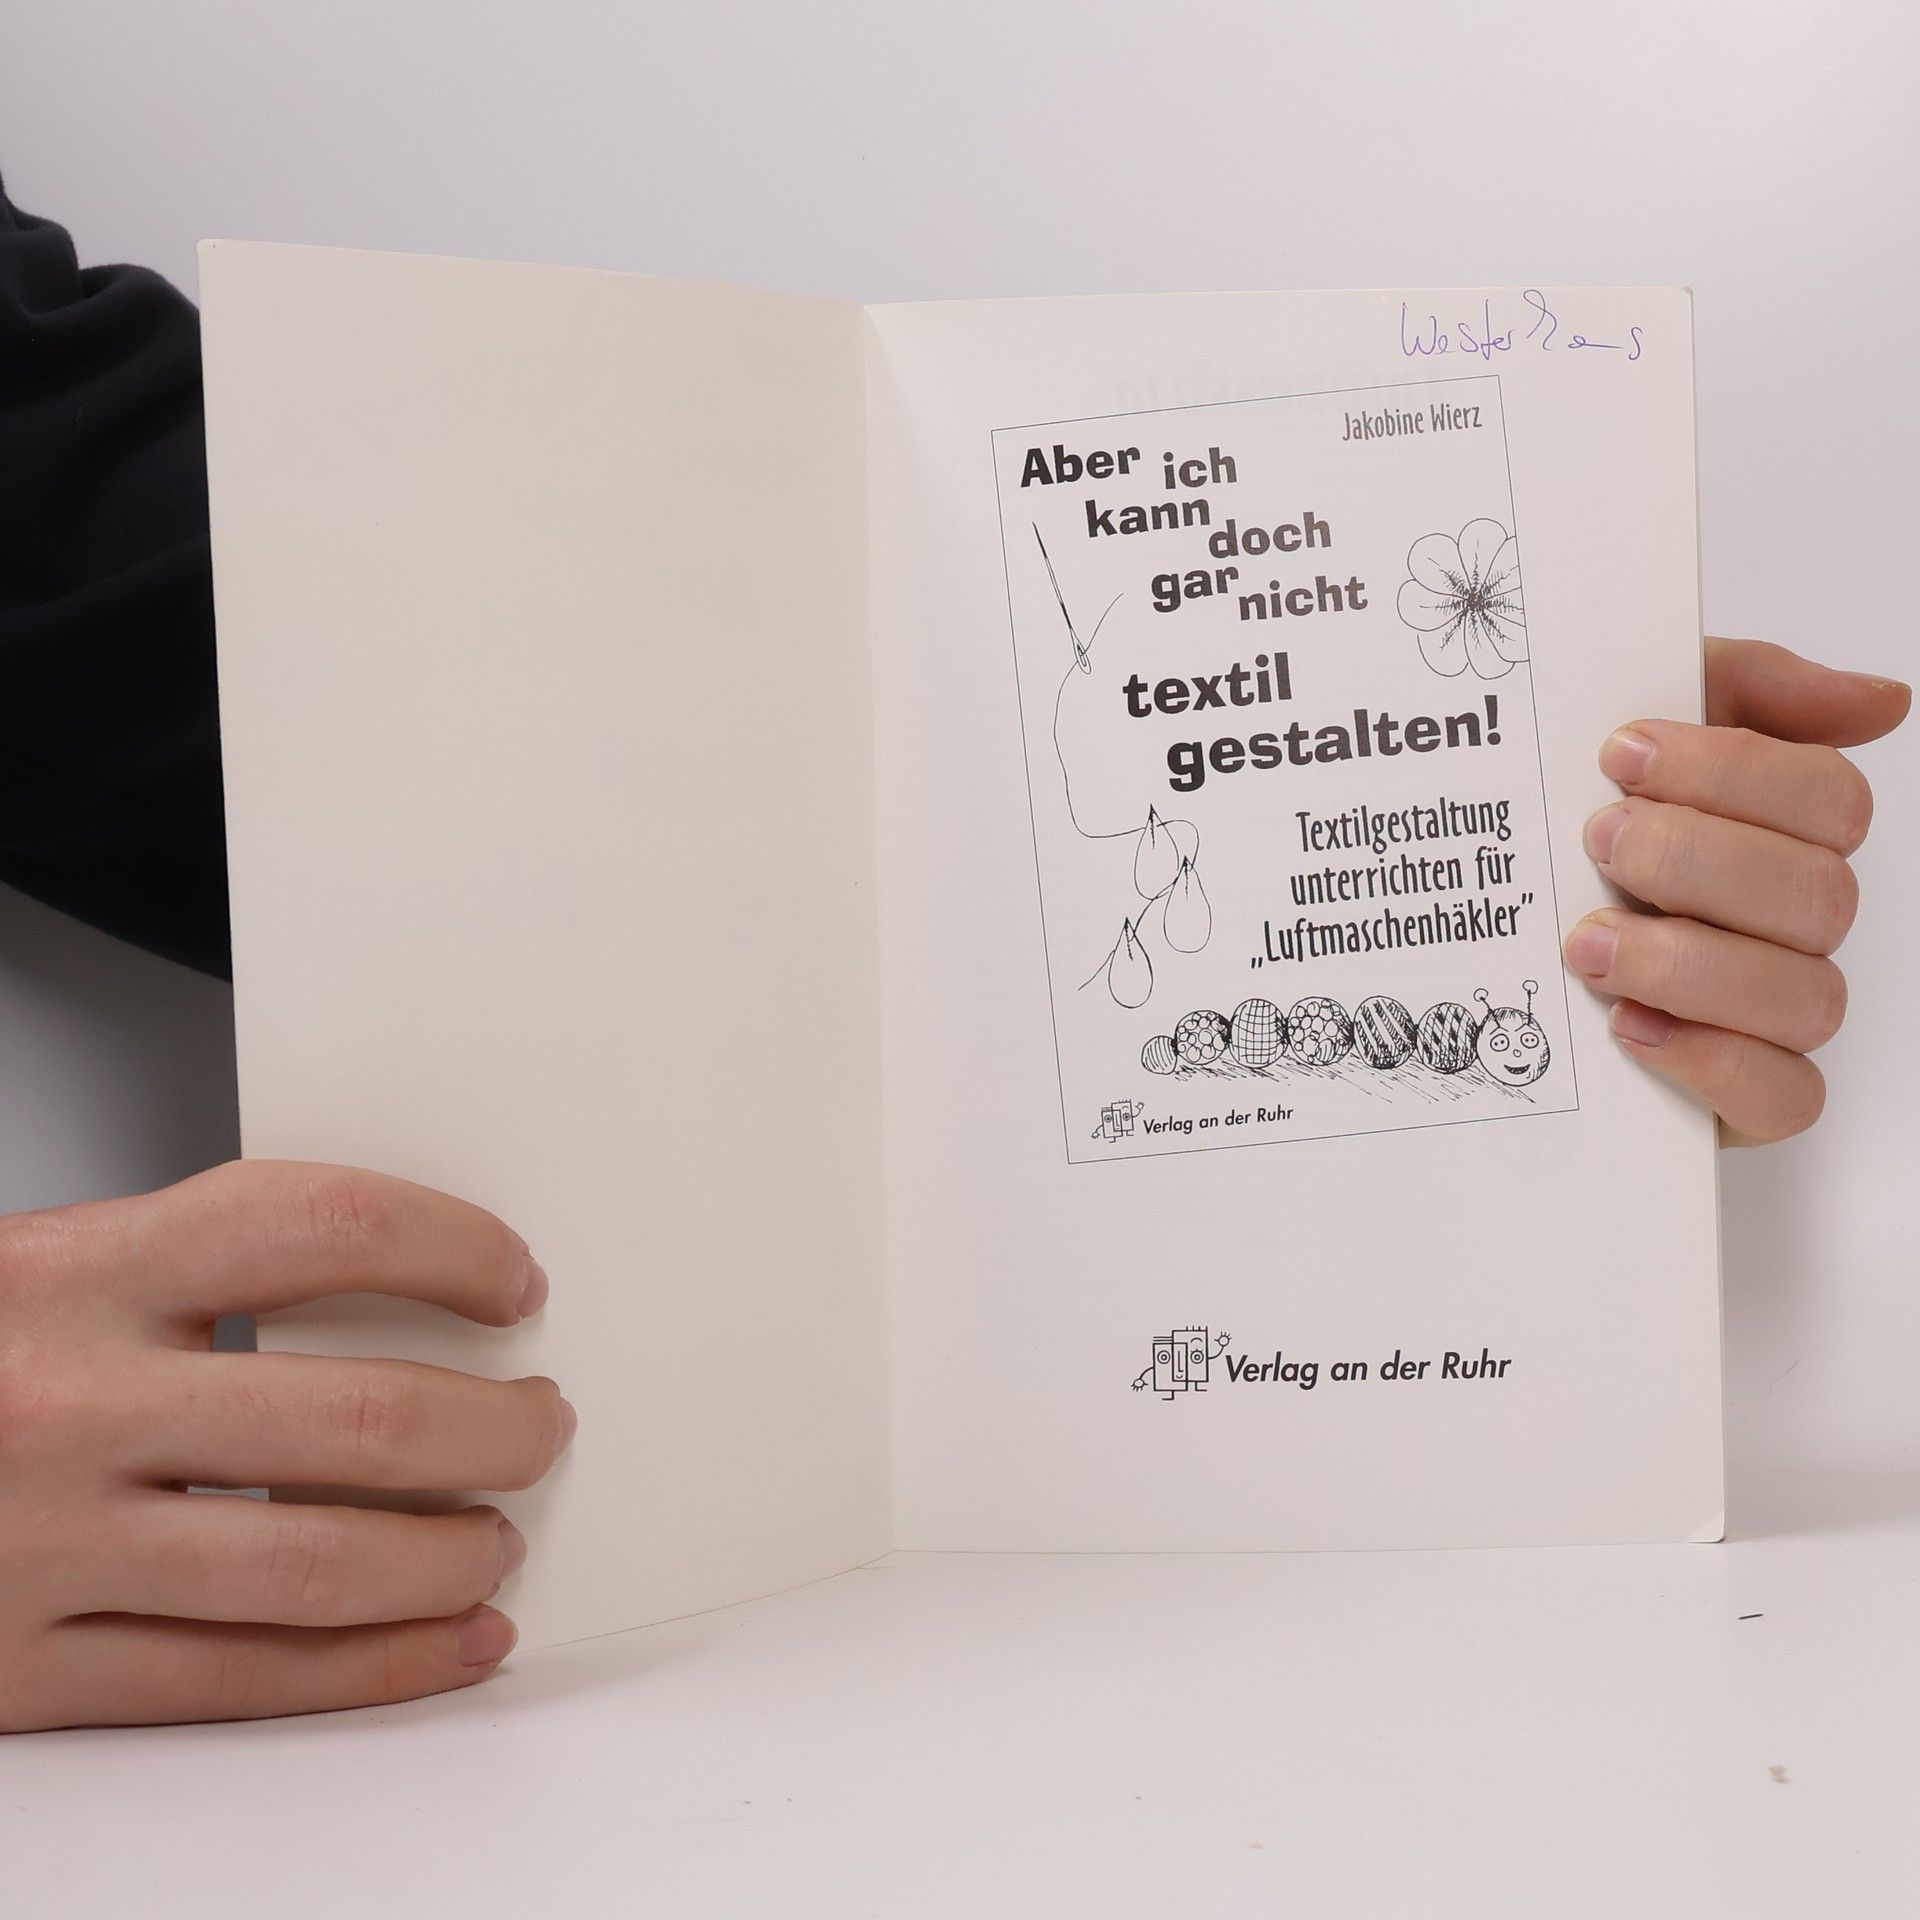 Jakobine Wierz
Aber ich
kann doch
gar nicht
textil
gestalten!
Textilgestaltung
unterrichten für
„Luftmaschenhäkler”
Verlag an der Ruhr
Verlag an der Ruhr